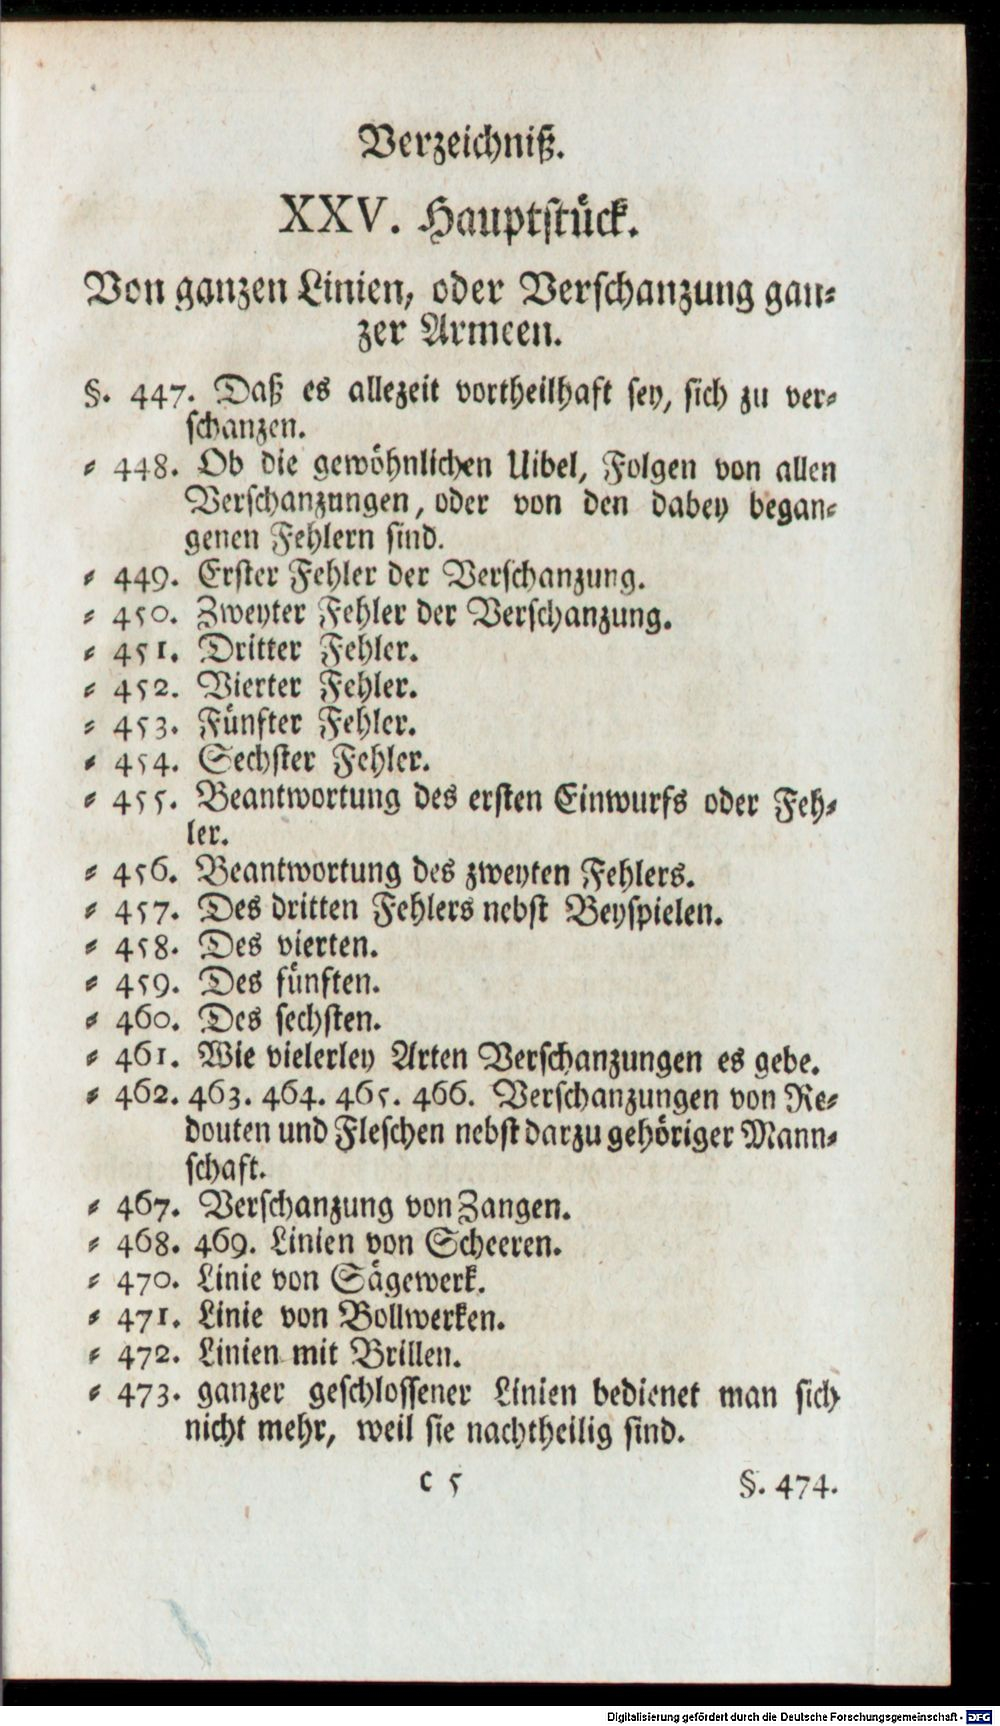 Verzeichniß.
XXV. Hauptstück.
Von ganzen Linien, oder Verschanzung gan-
zer Armeen.
§. 447. Daß es allezeit vortheilhaft sey, sich zu ver-
schanzen.
- 448. Ob die gewöhnlichen Uibel, Folgen von allen
Verschanzungen, oder von den dabey began-
genen Fehlern sind.
- 449. Erster Fehler der Verschanzung.
- 450. Zweyter Fehler der Verschanzung.
- 451. Dritter Fehler.
- 452. Vierter Fehler.
- 453. Fünfter Fehler.
- 454. Sechster Fehler.
- 455. Beantwortung des ersten Einwurfs oder Feh-
ler.
- 456. Beantwortung des zweyten Fehlers.
- 457. Des dritten Fehlers nebst Beyspielen.
- 458. Des vierten.
- 459. Des fünften.
- 460. Des sechsten.
- 461. Wie vielerley Arten Verschanzungen es gebe.
- 462. 463. 464. 465. 466. Verschanzungen von Re-
douten und Fleschen nebst darzu gehöriger Mann-
schaft.
- 467. Verschanzung von Zangen.
- 468. 469. Linien von Scheeren.
- 470. Linie von Sägewerk.
- 471. Linie von Bollwerken.
- 472. Linien mit Brillen.
- 473. ganzer geschlossener Linien bedienet man sich
nicht mehr, weil sie nachtheilig sind.
c 5 §. 474.
Digitalisierung gefördert durch die Deutsche Forschungsgemeinschaft - DFG